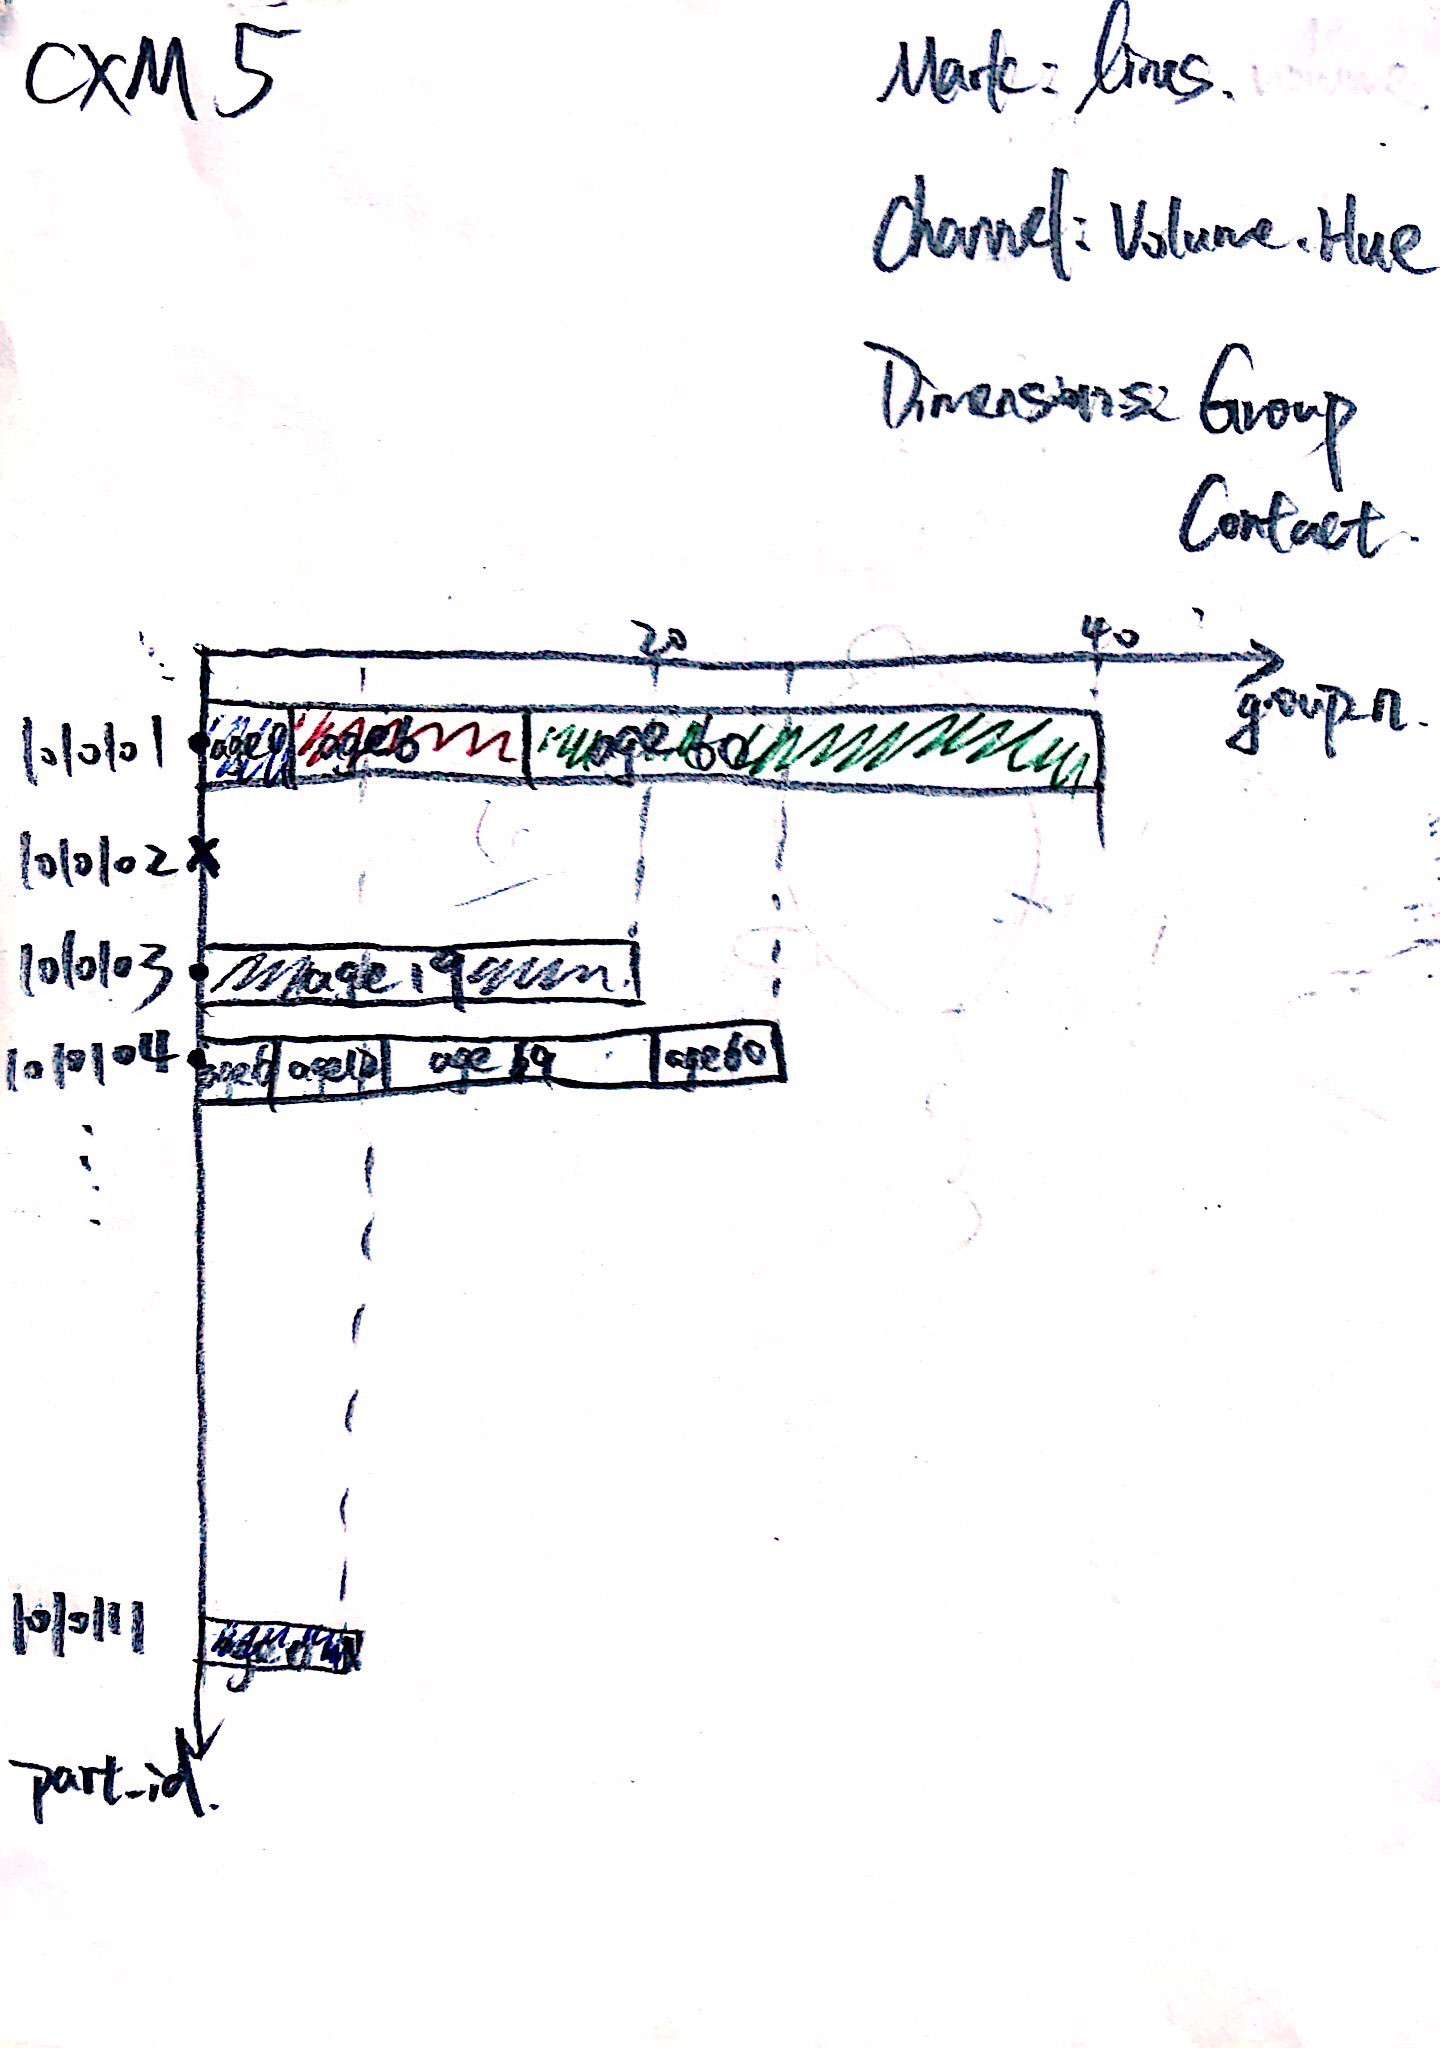 CXM 5
Mark: lines.
Channel: Volume. Hue
Dimensions: Group
Contact.
20 40
group_n.
10101 age0 age6 age60
10102
10103 age 19
10104 age6 age12 age 19 age60
10111
part_id.